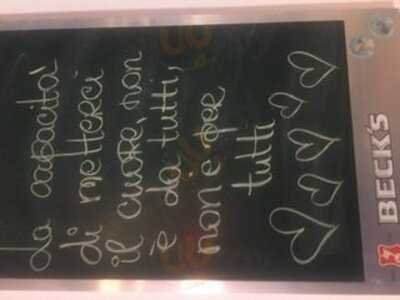 La capacità
di metterci
il cuore, non
è da tutti,
non è per
tutti
BECK'S